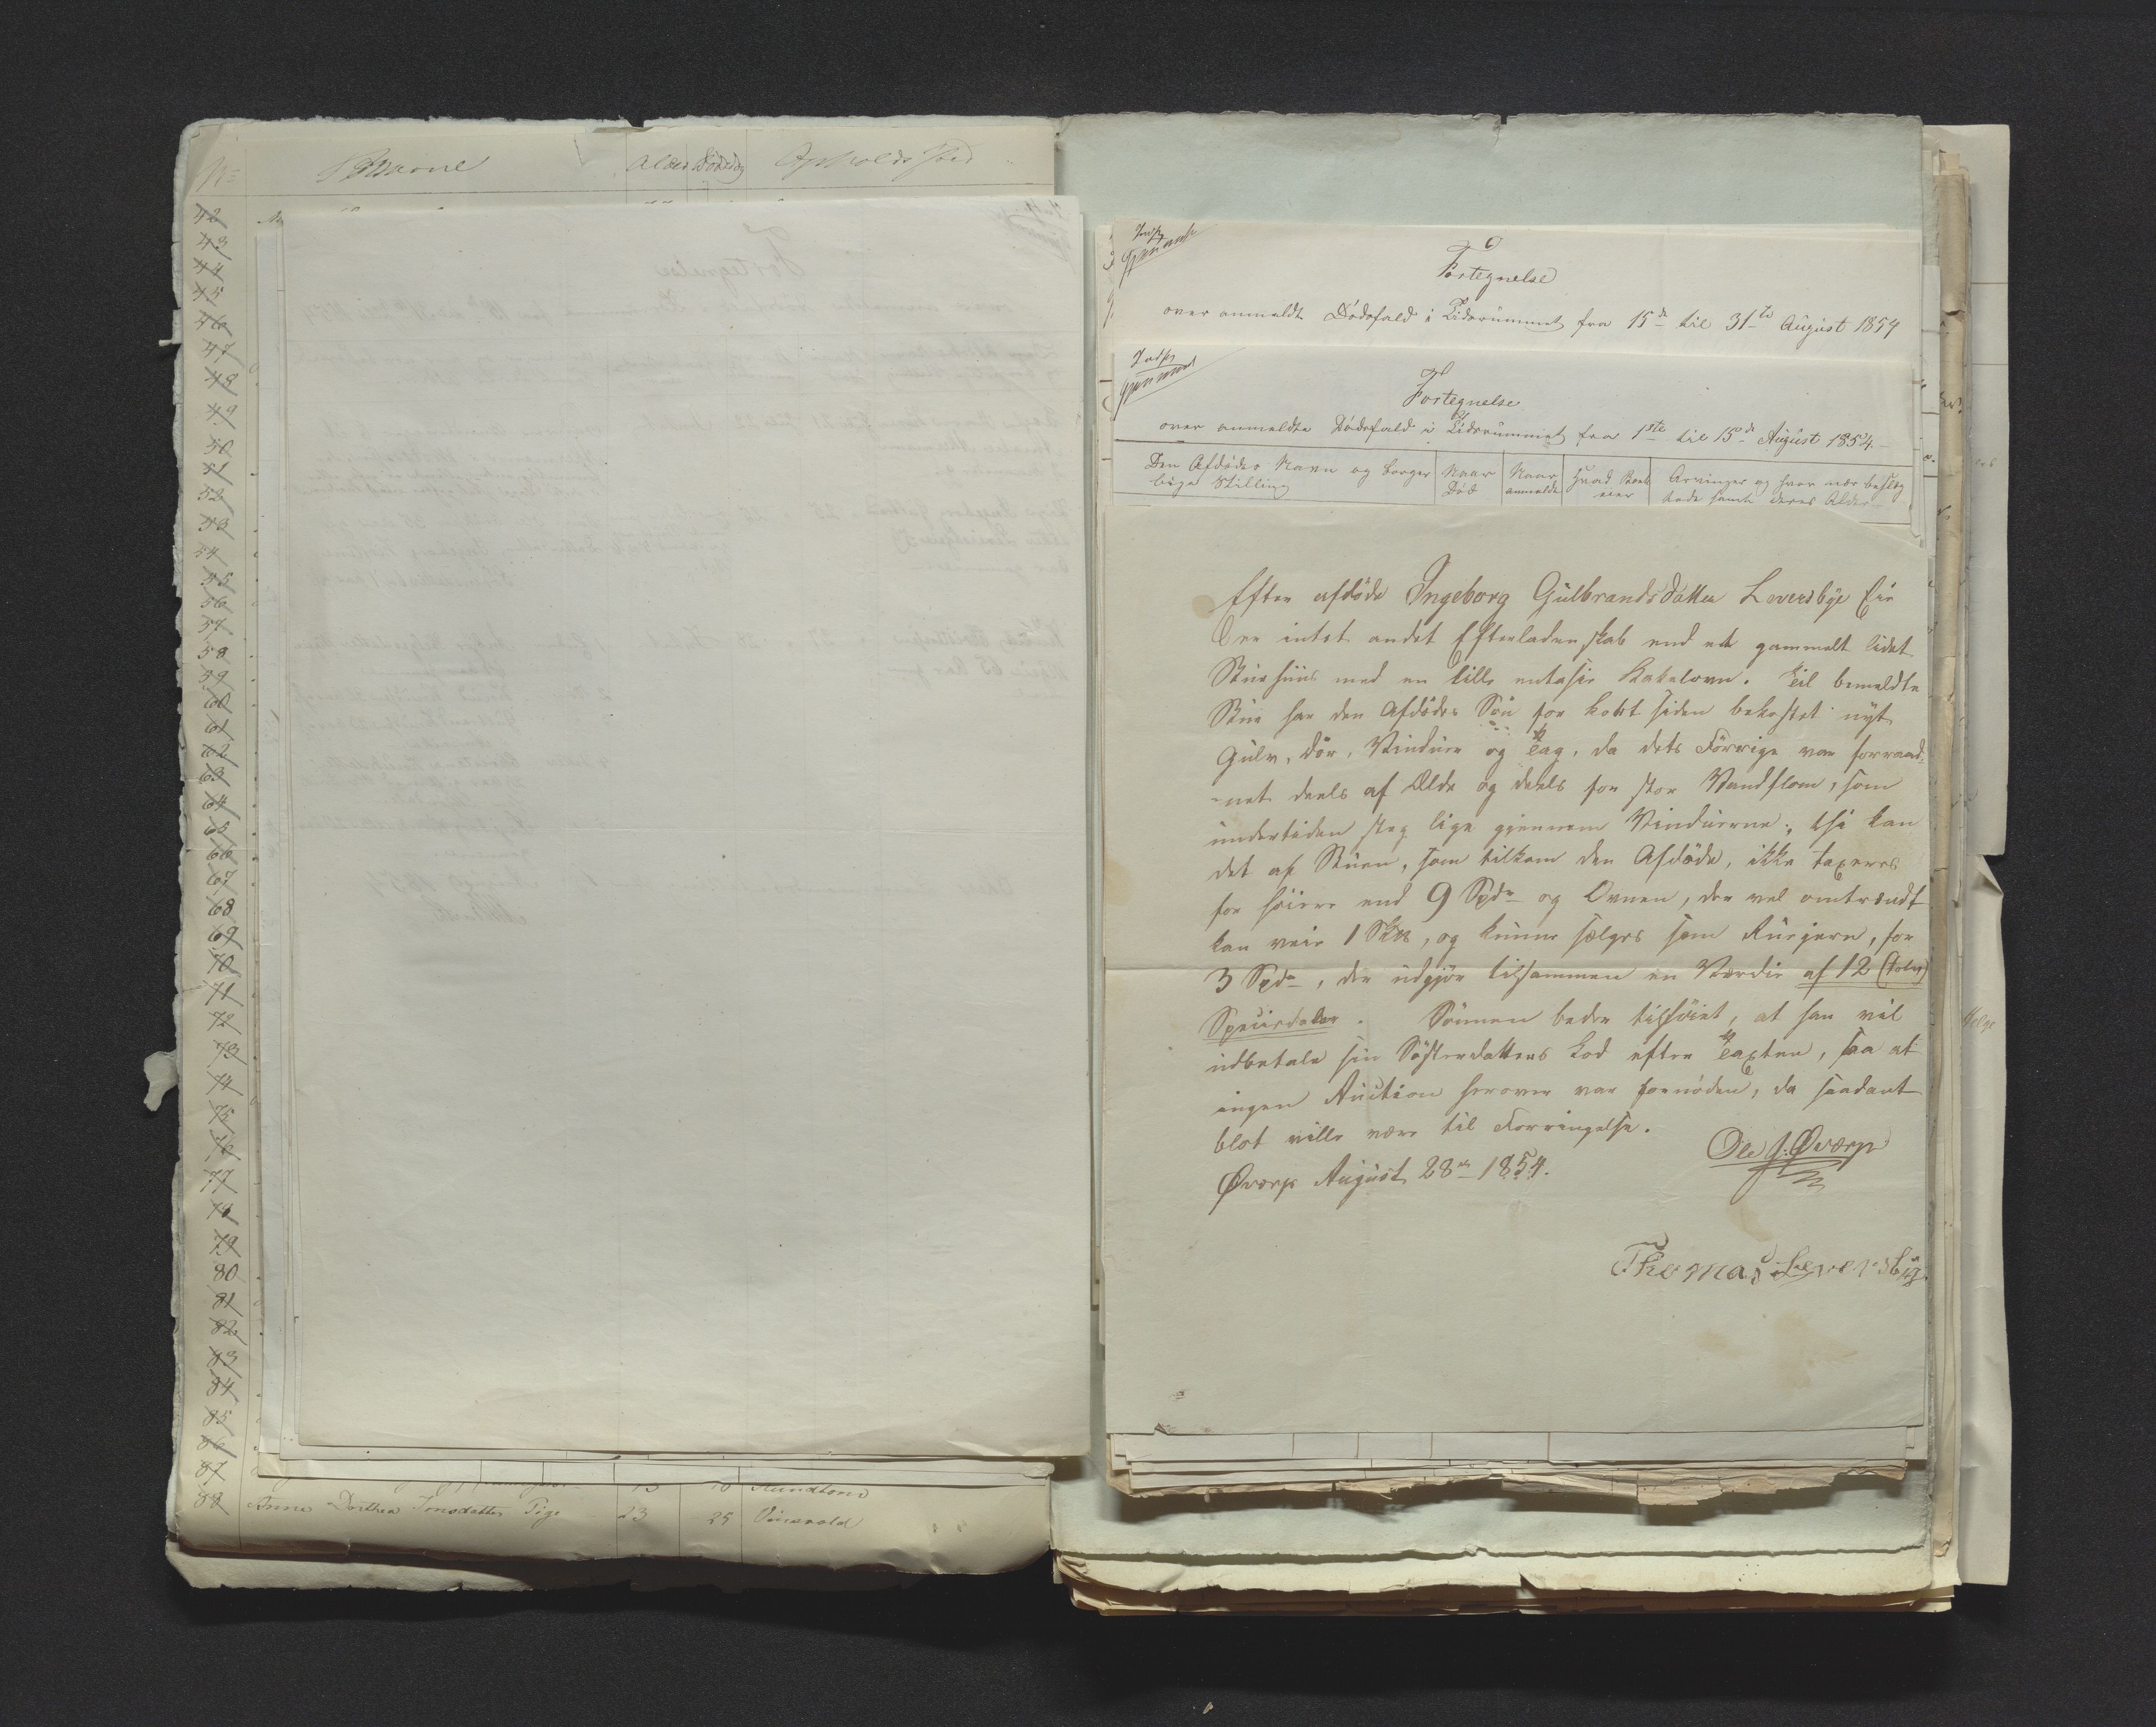 No Navne Alder Dödsdag Opholdssted
42
43
44
45
46
47
48
49
50
51
52
53
54
55
56
57
58
59
60
61
62
63
64
65
66
67
68
69
70
71
72
73
74
75
76
77
78
79
80
81
82
83
84
85
86
87
88 Anna Dorthea Jonsdatter Pige 23 25
Fortegnelse
over anmeldte Dödsfald i Tidsrummet fra 15de til 31te August 1854
Fortegnelse
over anmeldte Dödsfald i Tidsrummet fra 1ste til 15de August 1854
Den Afdödes Navn og borger Naar Naar Hvad Arvinger og hvor nær beslæg
lige Stilling Död anmeldt eier tede samt deres Alder
Efter afdöde Ingeborg Gulbrandsdatter Leversbye Eie
er intet andet Efterladenskab end et gammelt lidet
Stuehuus med en lille Kakelovn. Til bemeldte
Stue har den Afdödes Sön for kort siden bekostet nyt
Gulv, Dör, Vinduer og Tag, da dets Forrige var forraad-
-net deels af Ælde og deels for stor Vandflom, som
undertiden steg lige gjennem Vinduerne; thi kan
det af Stuen, som tilkom den Afdöde, ikke taxeres
for höiere end 9 Spdr og Ovnen, der vel omtrendt
kan veie 1 Sk℔, og kunne sælges som Rujern, for
3 Spdr, der udgjör tilsammen en Værdie af 12 (tolv)
Speciedaler. Sönnen beder tilföiet, at han vil
udbetale sin Södsterdatters Lod efter Taxten, saa at
ingen Auction herover var fornöden, da saadant
blot ville være til Forringelse.
Qværp August 28de 1854. Ole J. Qværp
Thomas Leversbÿ